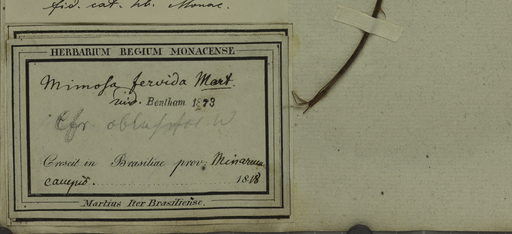 fid. cat. hb. Monac.
HERBARIUM REGIUM MONACENSE
Mimosa fervida Mart.
vid. Bentham 1873
Cfr.
Crescit in Brasiliae prov: Minarum
campis. 1818
Martius Iter Brasiliense.